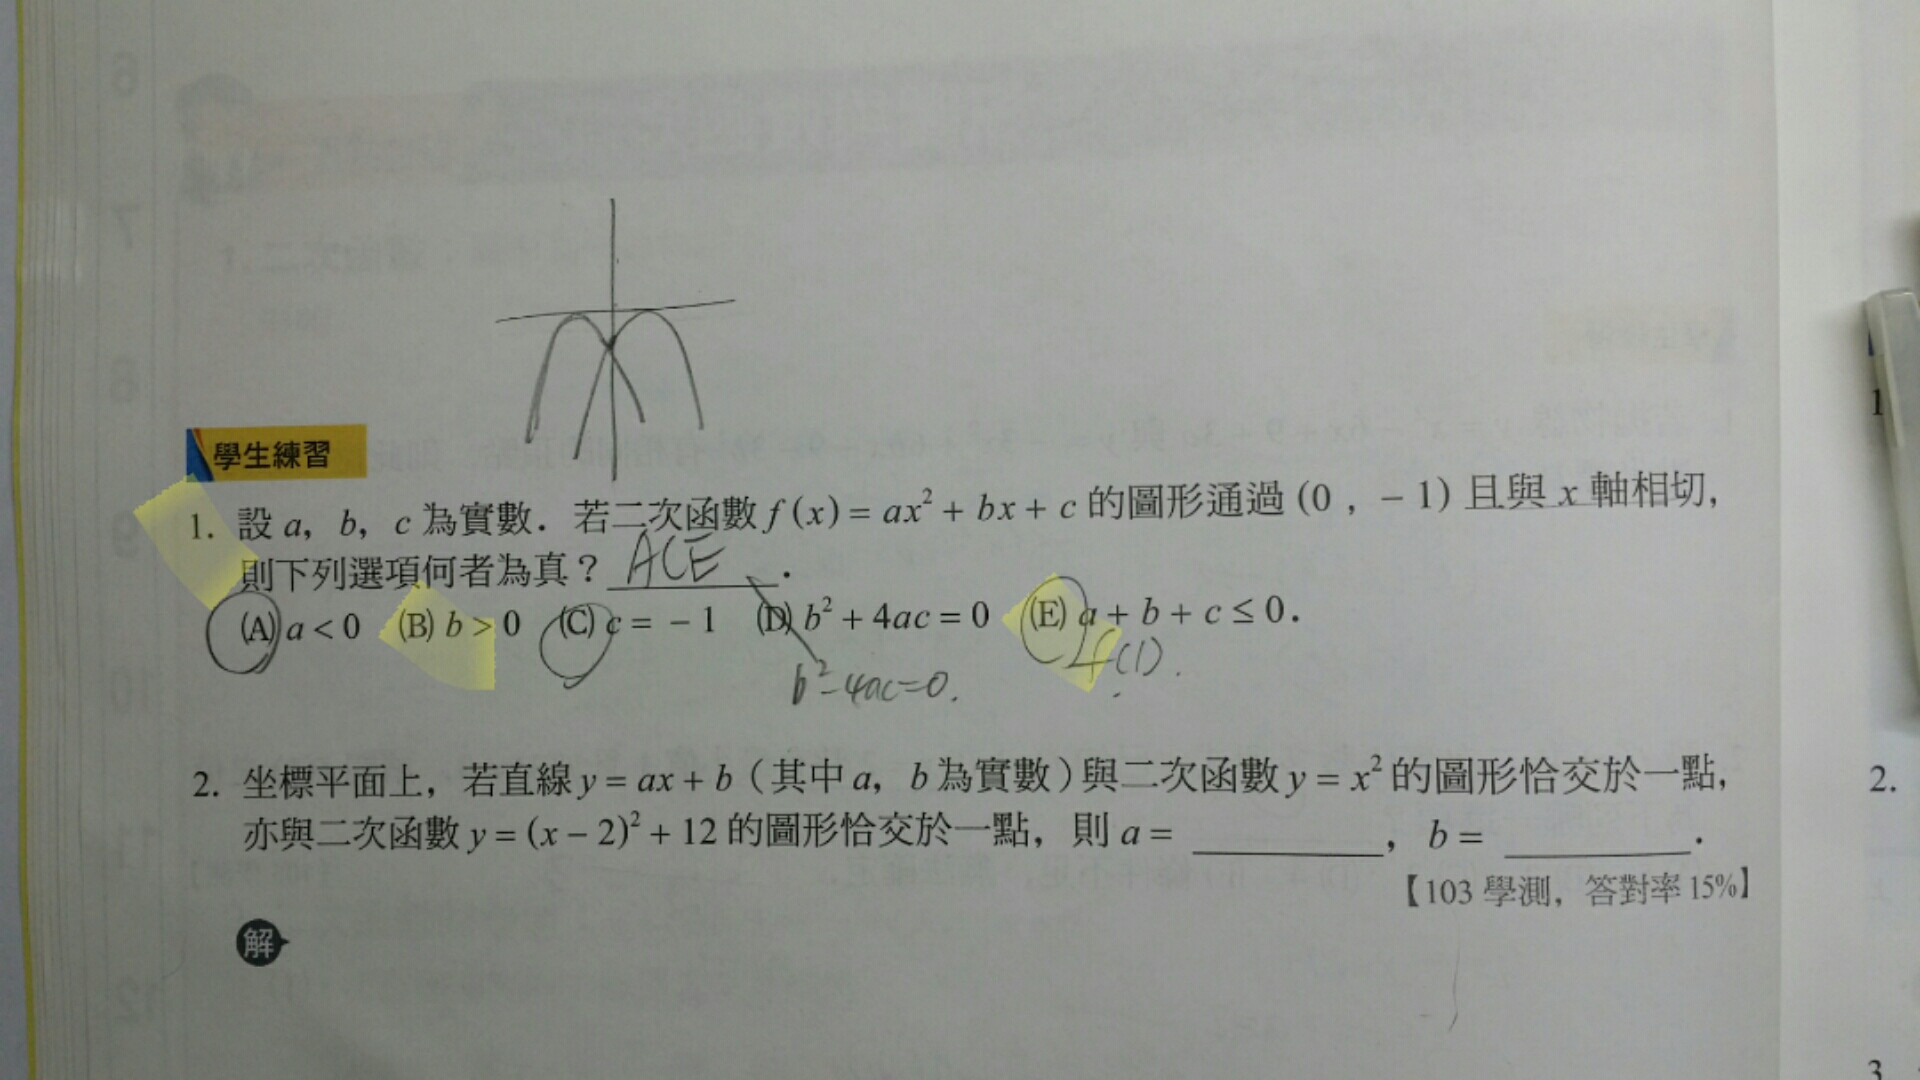 學生練習
1. 設 a，b，c 為實數．若二次函數 f (x) = ax² + bx + c 的圖形通過 (0 , − 1) 且與 x 軸相切，
則下列選項何者為真？ ACE ．
(A) a < 0 (B) b > 0 (C) c = − 1 (D) b² + 4ac = 0 (E) a + b + c ≤ 0．
f(1).
b²-4ac=0.
2. 坐標平面上，若直線 y = ax + b（其中 a，b 為實數）與二次函數 y = x² 的圖形恰交於一點，
亦與二次函數 y = (x − 2)² + 12 的圖形恰交於一點，則 a = ，b = ．
【103 學測，答對率 15%】
解
1
2.
3